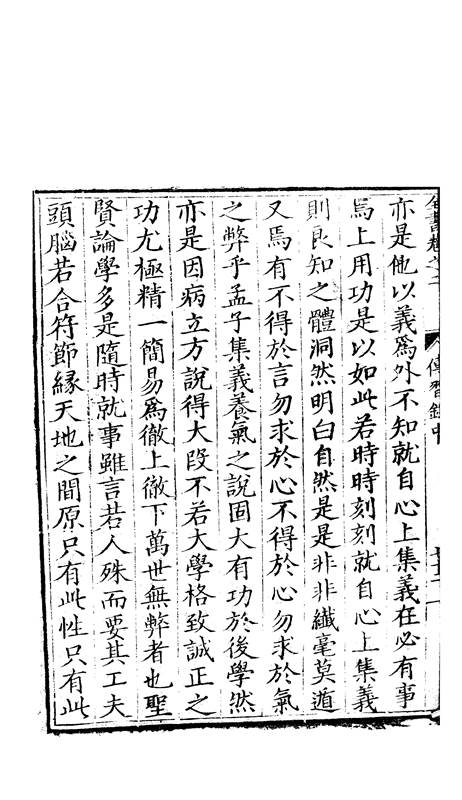 傳習錄中
亦是他以義爲外不知就自心上集義在必有事
焉上用功是以如此若時時刻刻就自心上集義
則良知之體洞然明白自然是是非非纖毫莫遁
又焉有不得於言勿求於心不得於心勿求於氣
之弊乎孟子集義養氣之說固大有功於後學然
亦是因病立方說得大段不若大學格致誠正之
功尤極精一簡易爲徹上徹下萬世無弊者也聖
賢論學多是隨時就事雖言若人殊而要其工夫
頭腦若合符節緣天地之間原只有此性只有此